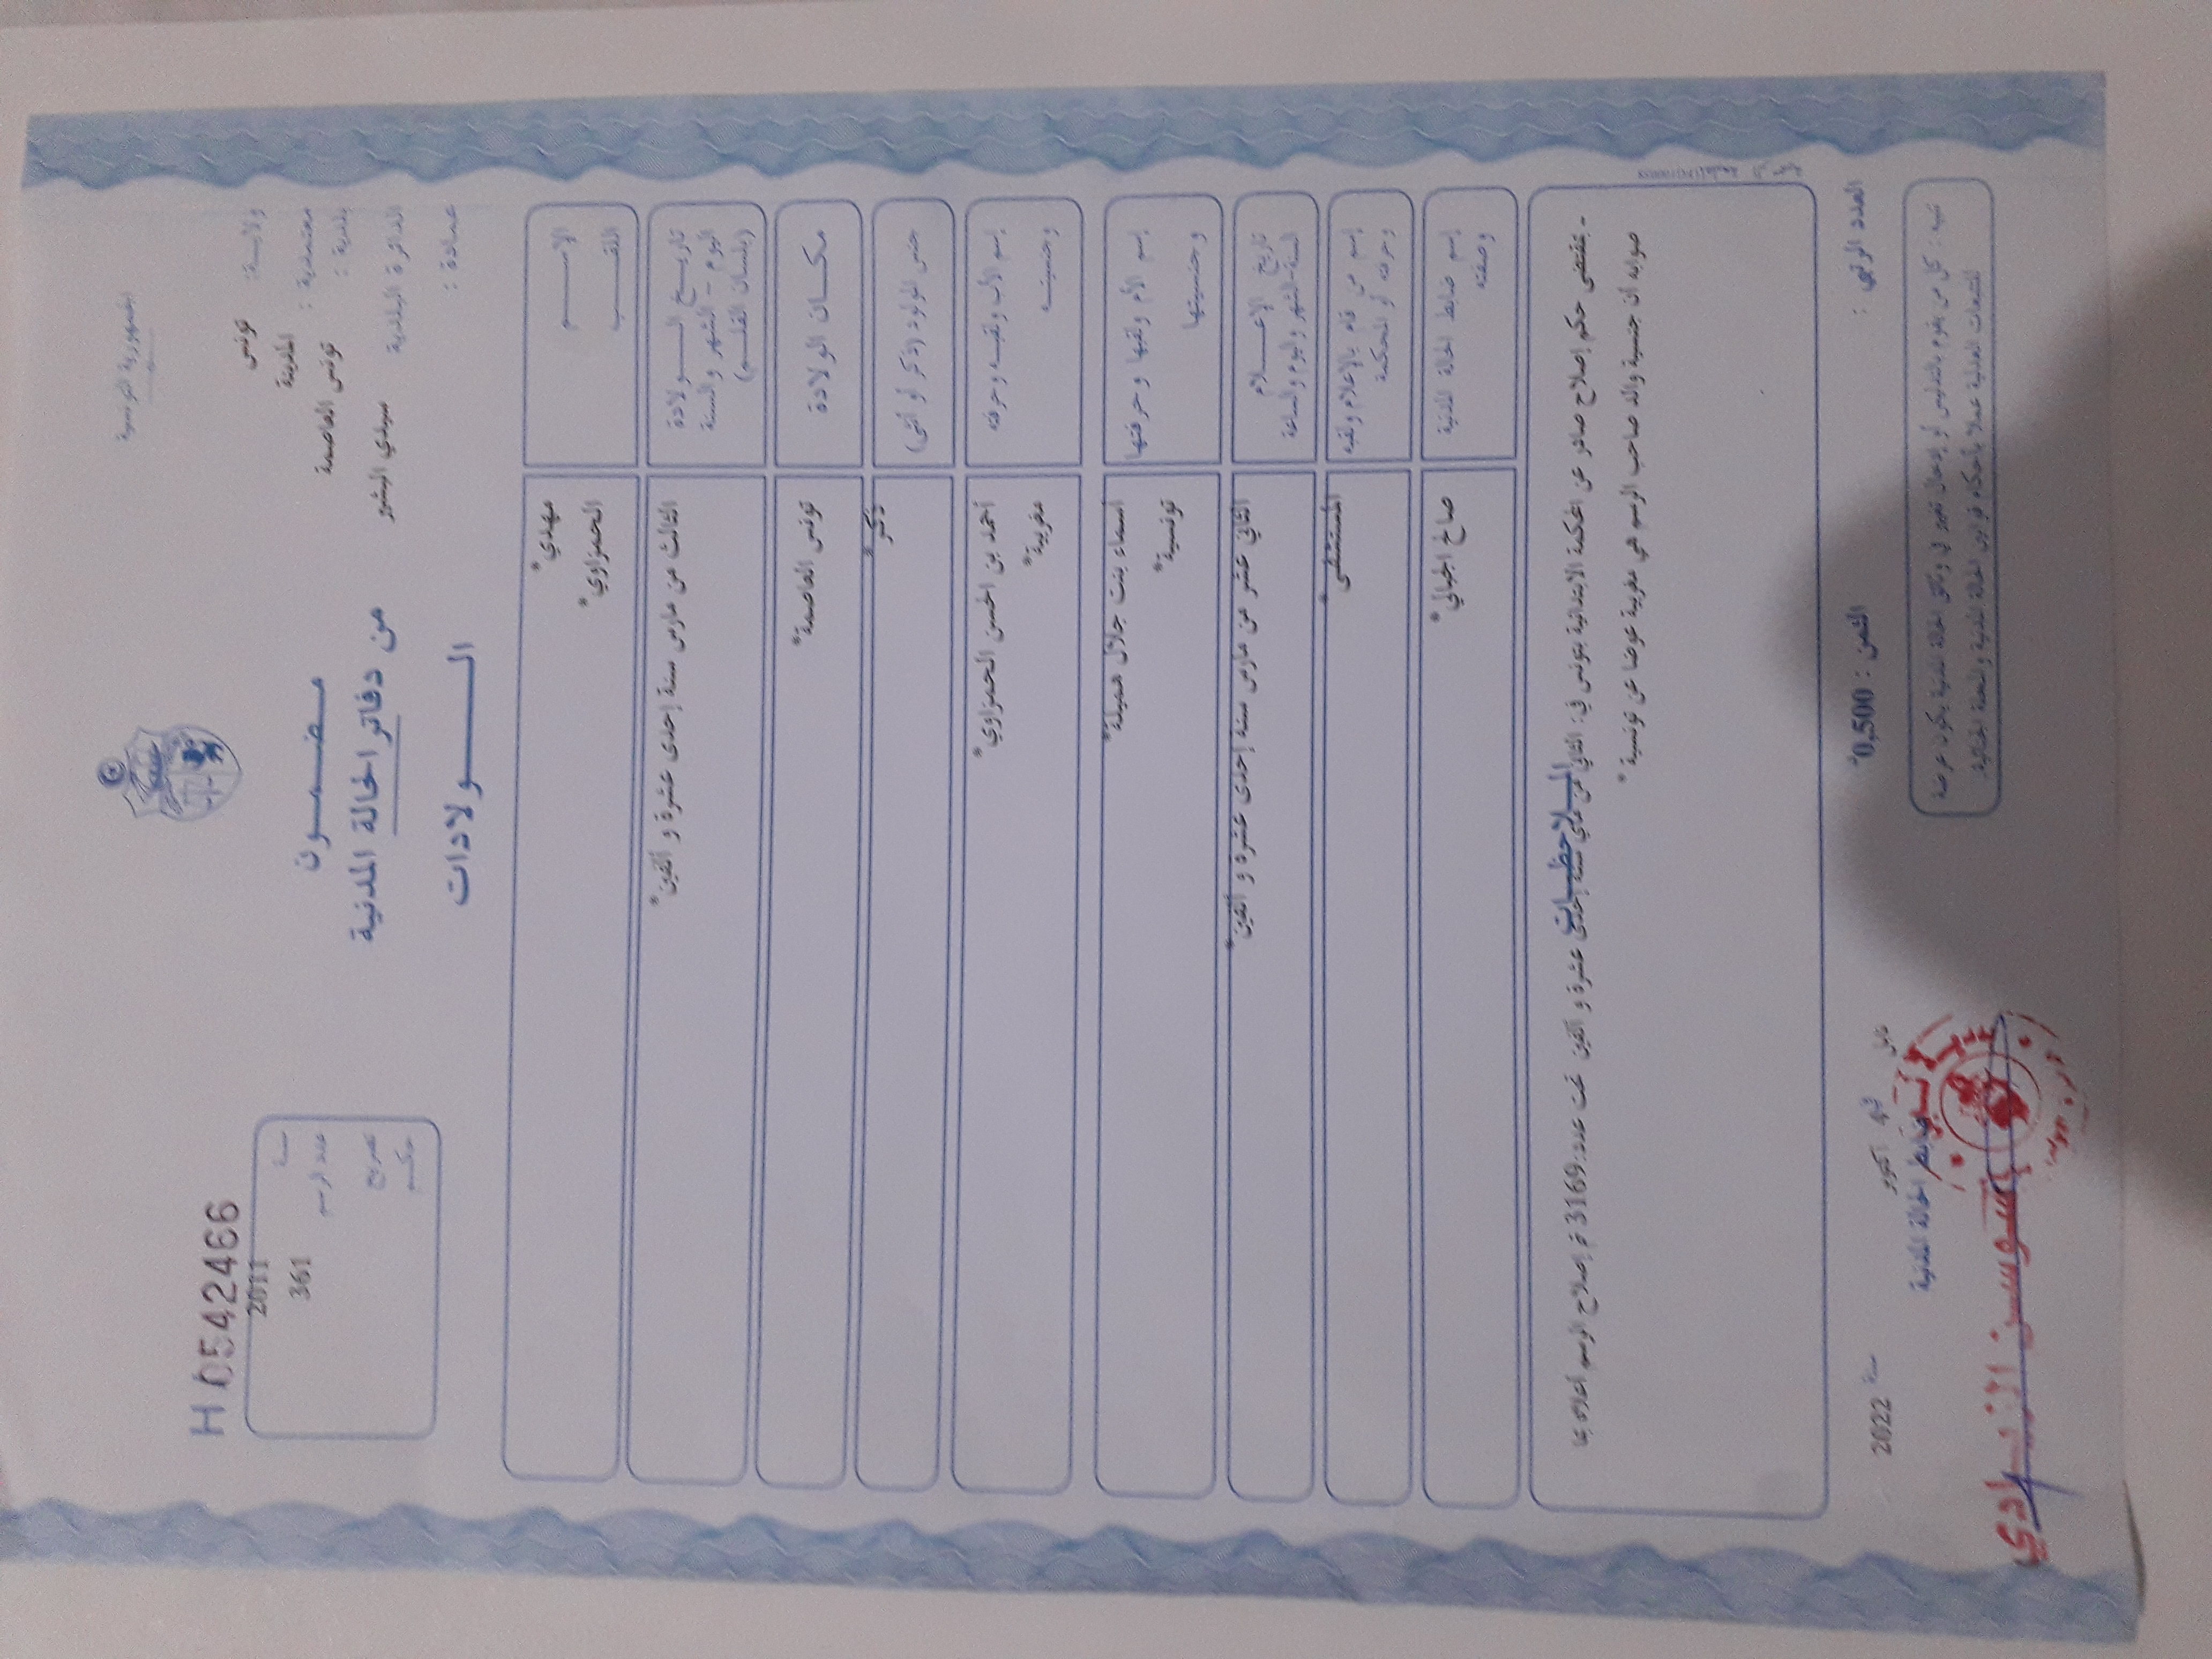 الجمهورية التونسية
H 0542466
ولايـــة: تونس
معتمدية : المدينة
بلدية : تونس العاصمة
الدائرة البلدية سيدي البشير
عمـادة :
مـضـمـــون
من دفاتر الحالة المدنية
الـــــولادات
سنـــة 2011
عدد الرسم 361
تصريح
حكـــم
الإســـــم مهدي*
اللقـــب الحمزاوي*
تاريـــخ الـــولادة
اليوم – الشهر والسنة
(بلسان القلـــم)
الثالث من مارس سنة إحدى عشرة و ألفين*
مكـــان الولادة تونس العاصمة*
جنس المولود (ذكر أو أنثى) ذكر*
إسم الأب ولقبـه وحرفته أحمد بن الحسن الحمزاوي*
وجنسيتــه مغربية*
إسم الأم ولقبها وحرفتها أسماء بنت جلال هميلة*
وجنسيتها تونسية*
تاريخ الإعـــلام
السنة-الشهر واليوم والساعة
الثاني عشر من مارس سنة إحدى عشرة و ألفين*
إسم من قام بالإعلام ولقبه
وحرفته أو المحكمة
المستشفى*
إسم ضابط الحالة المدنية
وصفته
صالح الجبالي*
المـــلاحظـــات
- بمقتضى حكم إصلاح صادر عن المحكمة الابتدائية بتونس في: الثاني من ماي سنة إحدى عشرة و ألفين تحت عدد:3169 تم إصلاح الرسم أعلاه بما
صوابه أن جنسية والد صاحب الرسم هي مغربية عوضا عن تونسية*
العدد الرتبي :
الثمن : 0,500
أكتوبر
سنة 2022
ضابط الحالة المدنية
تنبيه : كل من يقوم بالتدليس أو إدخال تغيير في وثائق الحالة المدنية يكون عرضة
للتتبعات العدلية عملا بأحكام قوانين الحالة المدنية والمجلة الجنائية.